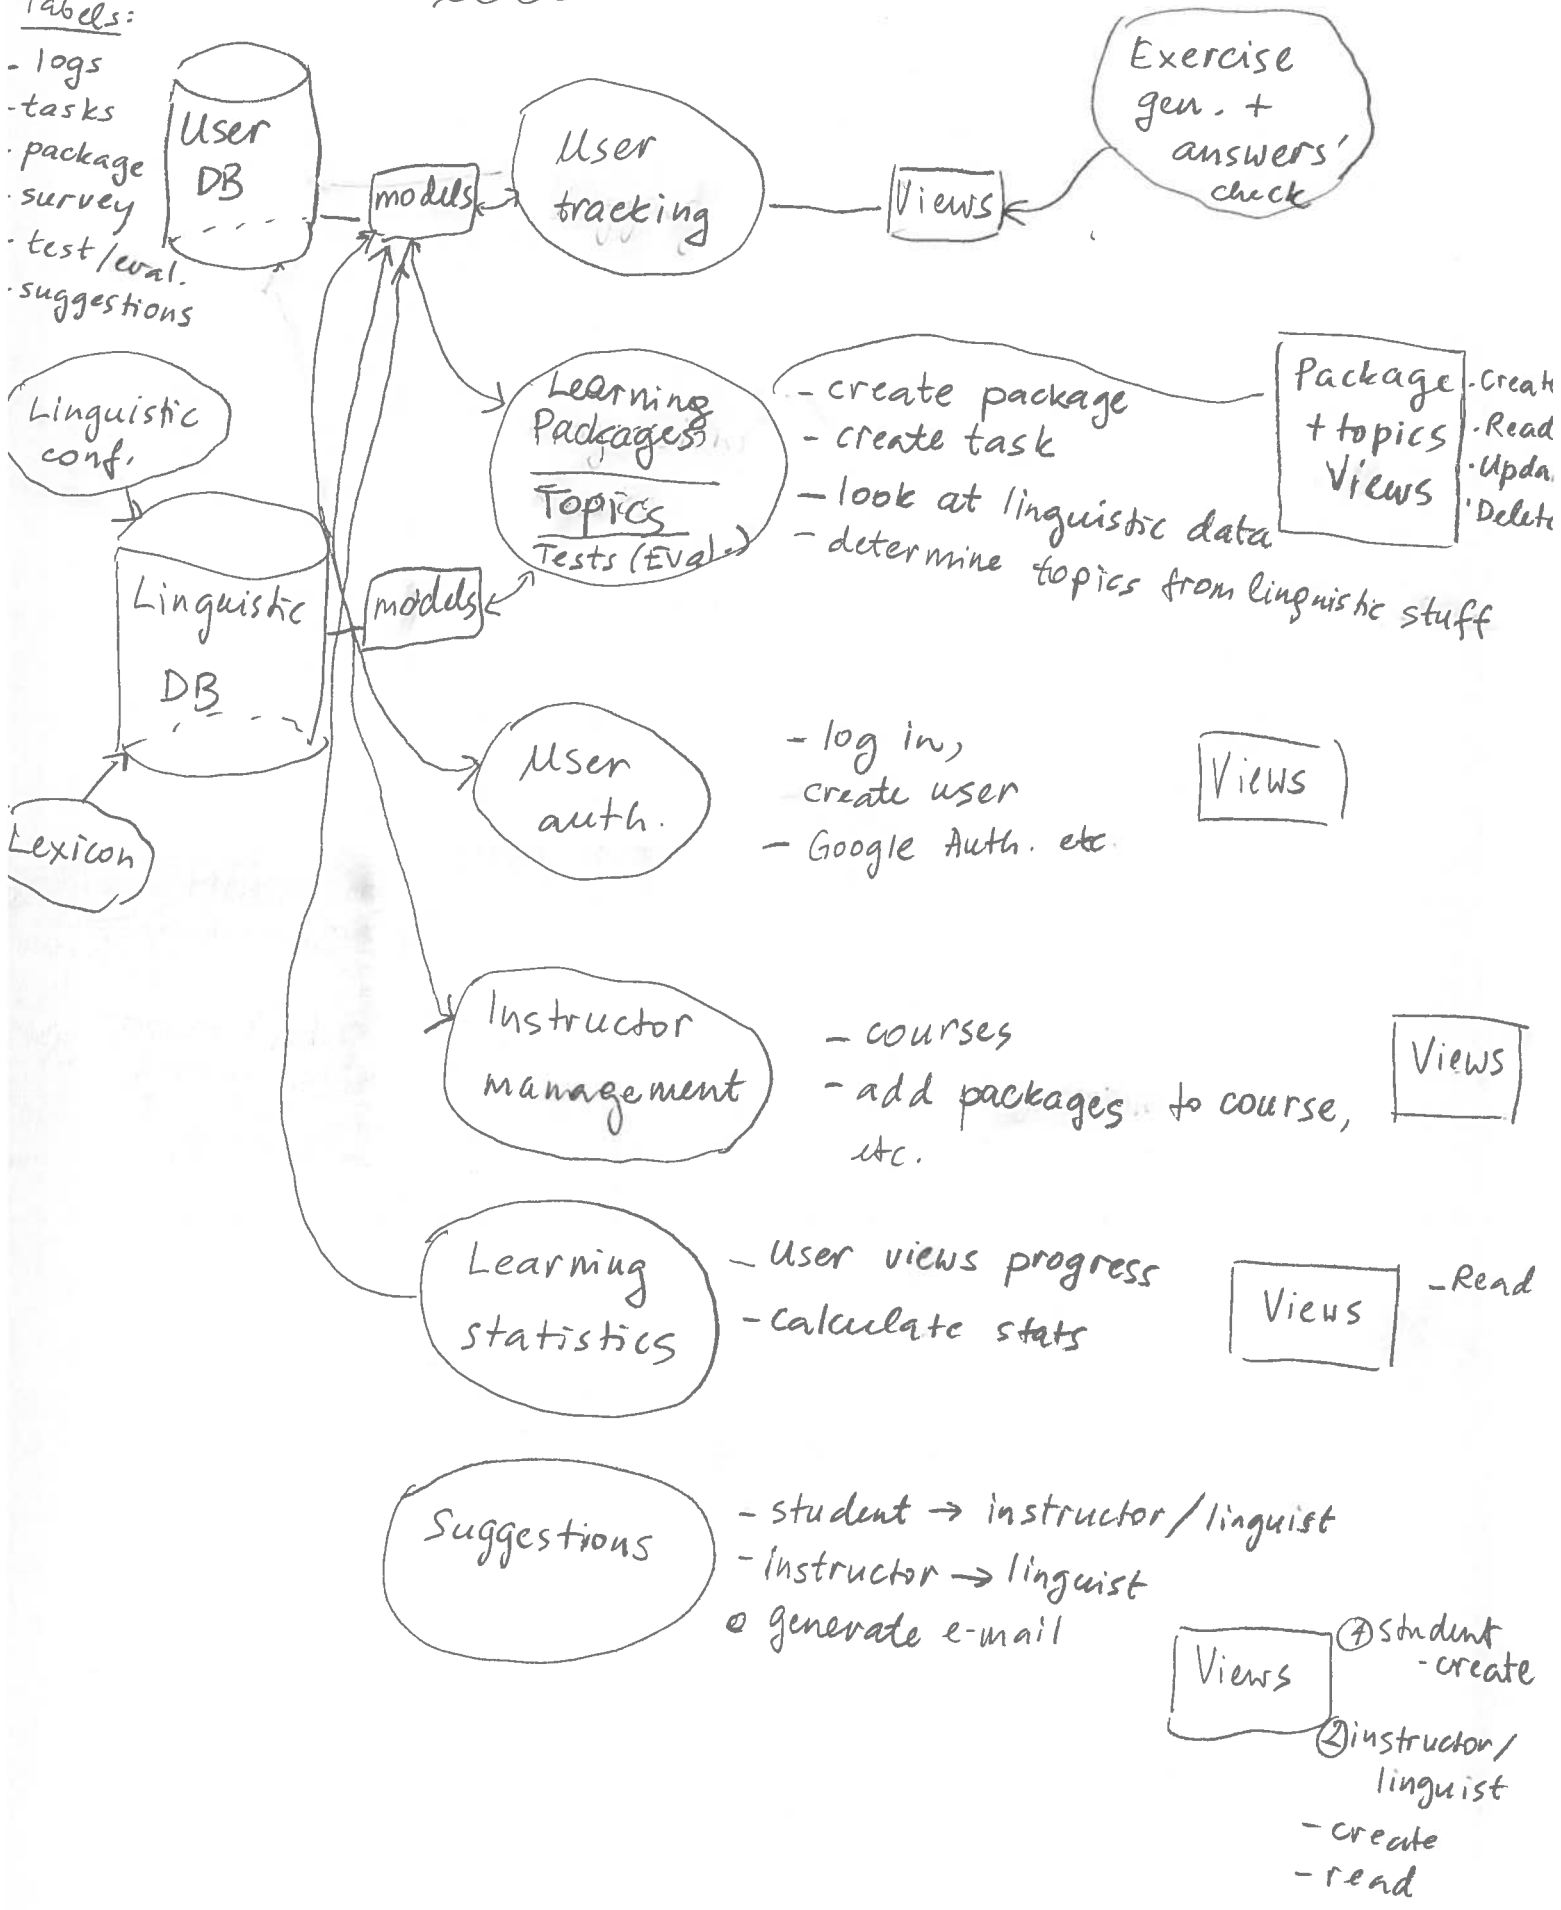 Tabels:
- logs
- tasks
- package
- survey
- test/eval.
- suggestions
User
DB
models
User
tracking
Views
Exercise
gen. +
answers'
check
Linguistic
conf.
Linguistic
DB
Lexicon
models
Learning
Packages
Topics
Tests (Eval.)
- create package
- create task
- look at linguistic data
- determine topics from linguistic stuff
Package
+ topics
Views
· Create
· Read
· Upda
· Delete
User
auth.
- log in,
create user
- Google Auth. etc
Views
Instructor
management
- courses
- add packages to course,
etc.
Views
Learning
statistics
- User views progress
- calculate stats
Views
- Read
Suggestions
- student → instructor/linguist
- instructor → linguist
• generate e-mail
Views
① student
- create
② instructor/
linguist
- create
- read